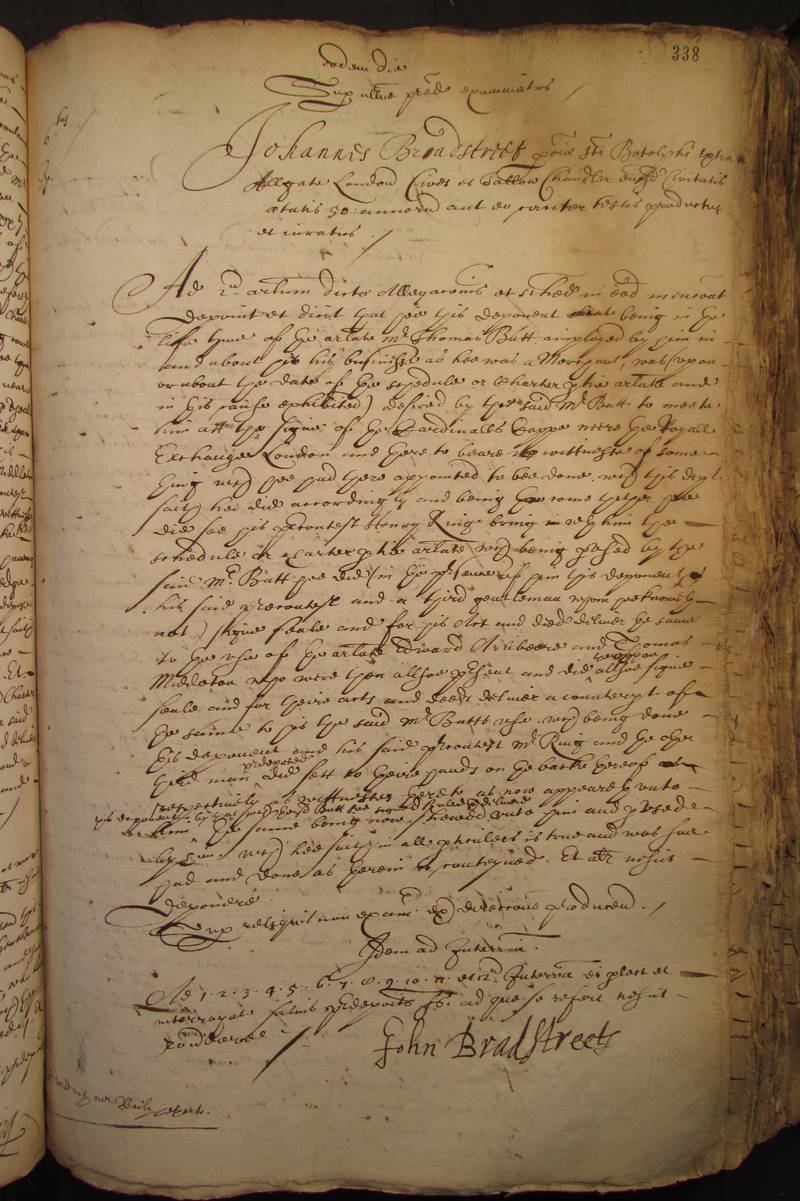 338
eodem die
Sup allne pred examinatus /
6tus
Johannes Bradstreet poie sti Botolphi extra
Allgate London Cives et Tallow Chandler eiusd Civitatis
ætatis 50 annoru aut eo circiter testis productus
et iuratus /
Ad 2u artlum dicta Allegaconis et sched in ead menconat
deponit et dicit that hee this deponent being in the
life tyme of the arlate Mr Thomas Butt imployed by him in
and about his businesse as hee was a Merchant, was (upon
or about the date of the schedule or Charter ptie arlate and
in this cause exhibited) desired by the said Mr Butt to meete
him att the signe of the Cardinalls Cappe neere the Royall
Exchange London and there to beare wittnesse of some
thing wch hee had there appointed to bee done wch this dept
saith hee did accordingly and being come thether hee
did see his precontest Henry Ring bring wth him the
schedule or Charter ptie arlate wch being pused by the
said Mr Butt hee did (in the psence of him this deponent
his said precontest and a third gentleman whom hee knoweth
not) signe seale and for his Act and deed deliver the same
to the use of the arlate Edward and Thomas
Midleton who were then allsoe psent and did allsoe signe
seale and for theire acts and deeds deliver a counterpt of
the same to his the said Mr Butts use wch being done
this deponent and his said precontest Mr Ring and the other
third man predeposed did sett to theire hands on the backe thereof
respectively as wittnesses thereto as now appeareth unto
this deponent by the said Butt soe signed sealed delivered
him the same being now shewed unto him and pused
by him wch hee saith in all pticulers is true and was soe
had and done as therein is conteyned. Et alr nescit
deponere
Sup reliquis non exam ex direccone producend /
Idem ad Interria
Ad 1. 2. 3. 4. 5. 6. 7. 8. 9. 10. 11. et 12 Interria ei plect et
interrogat salvis predepoits p eu ad que se refert nescit
rondere /
John Bradstreete